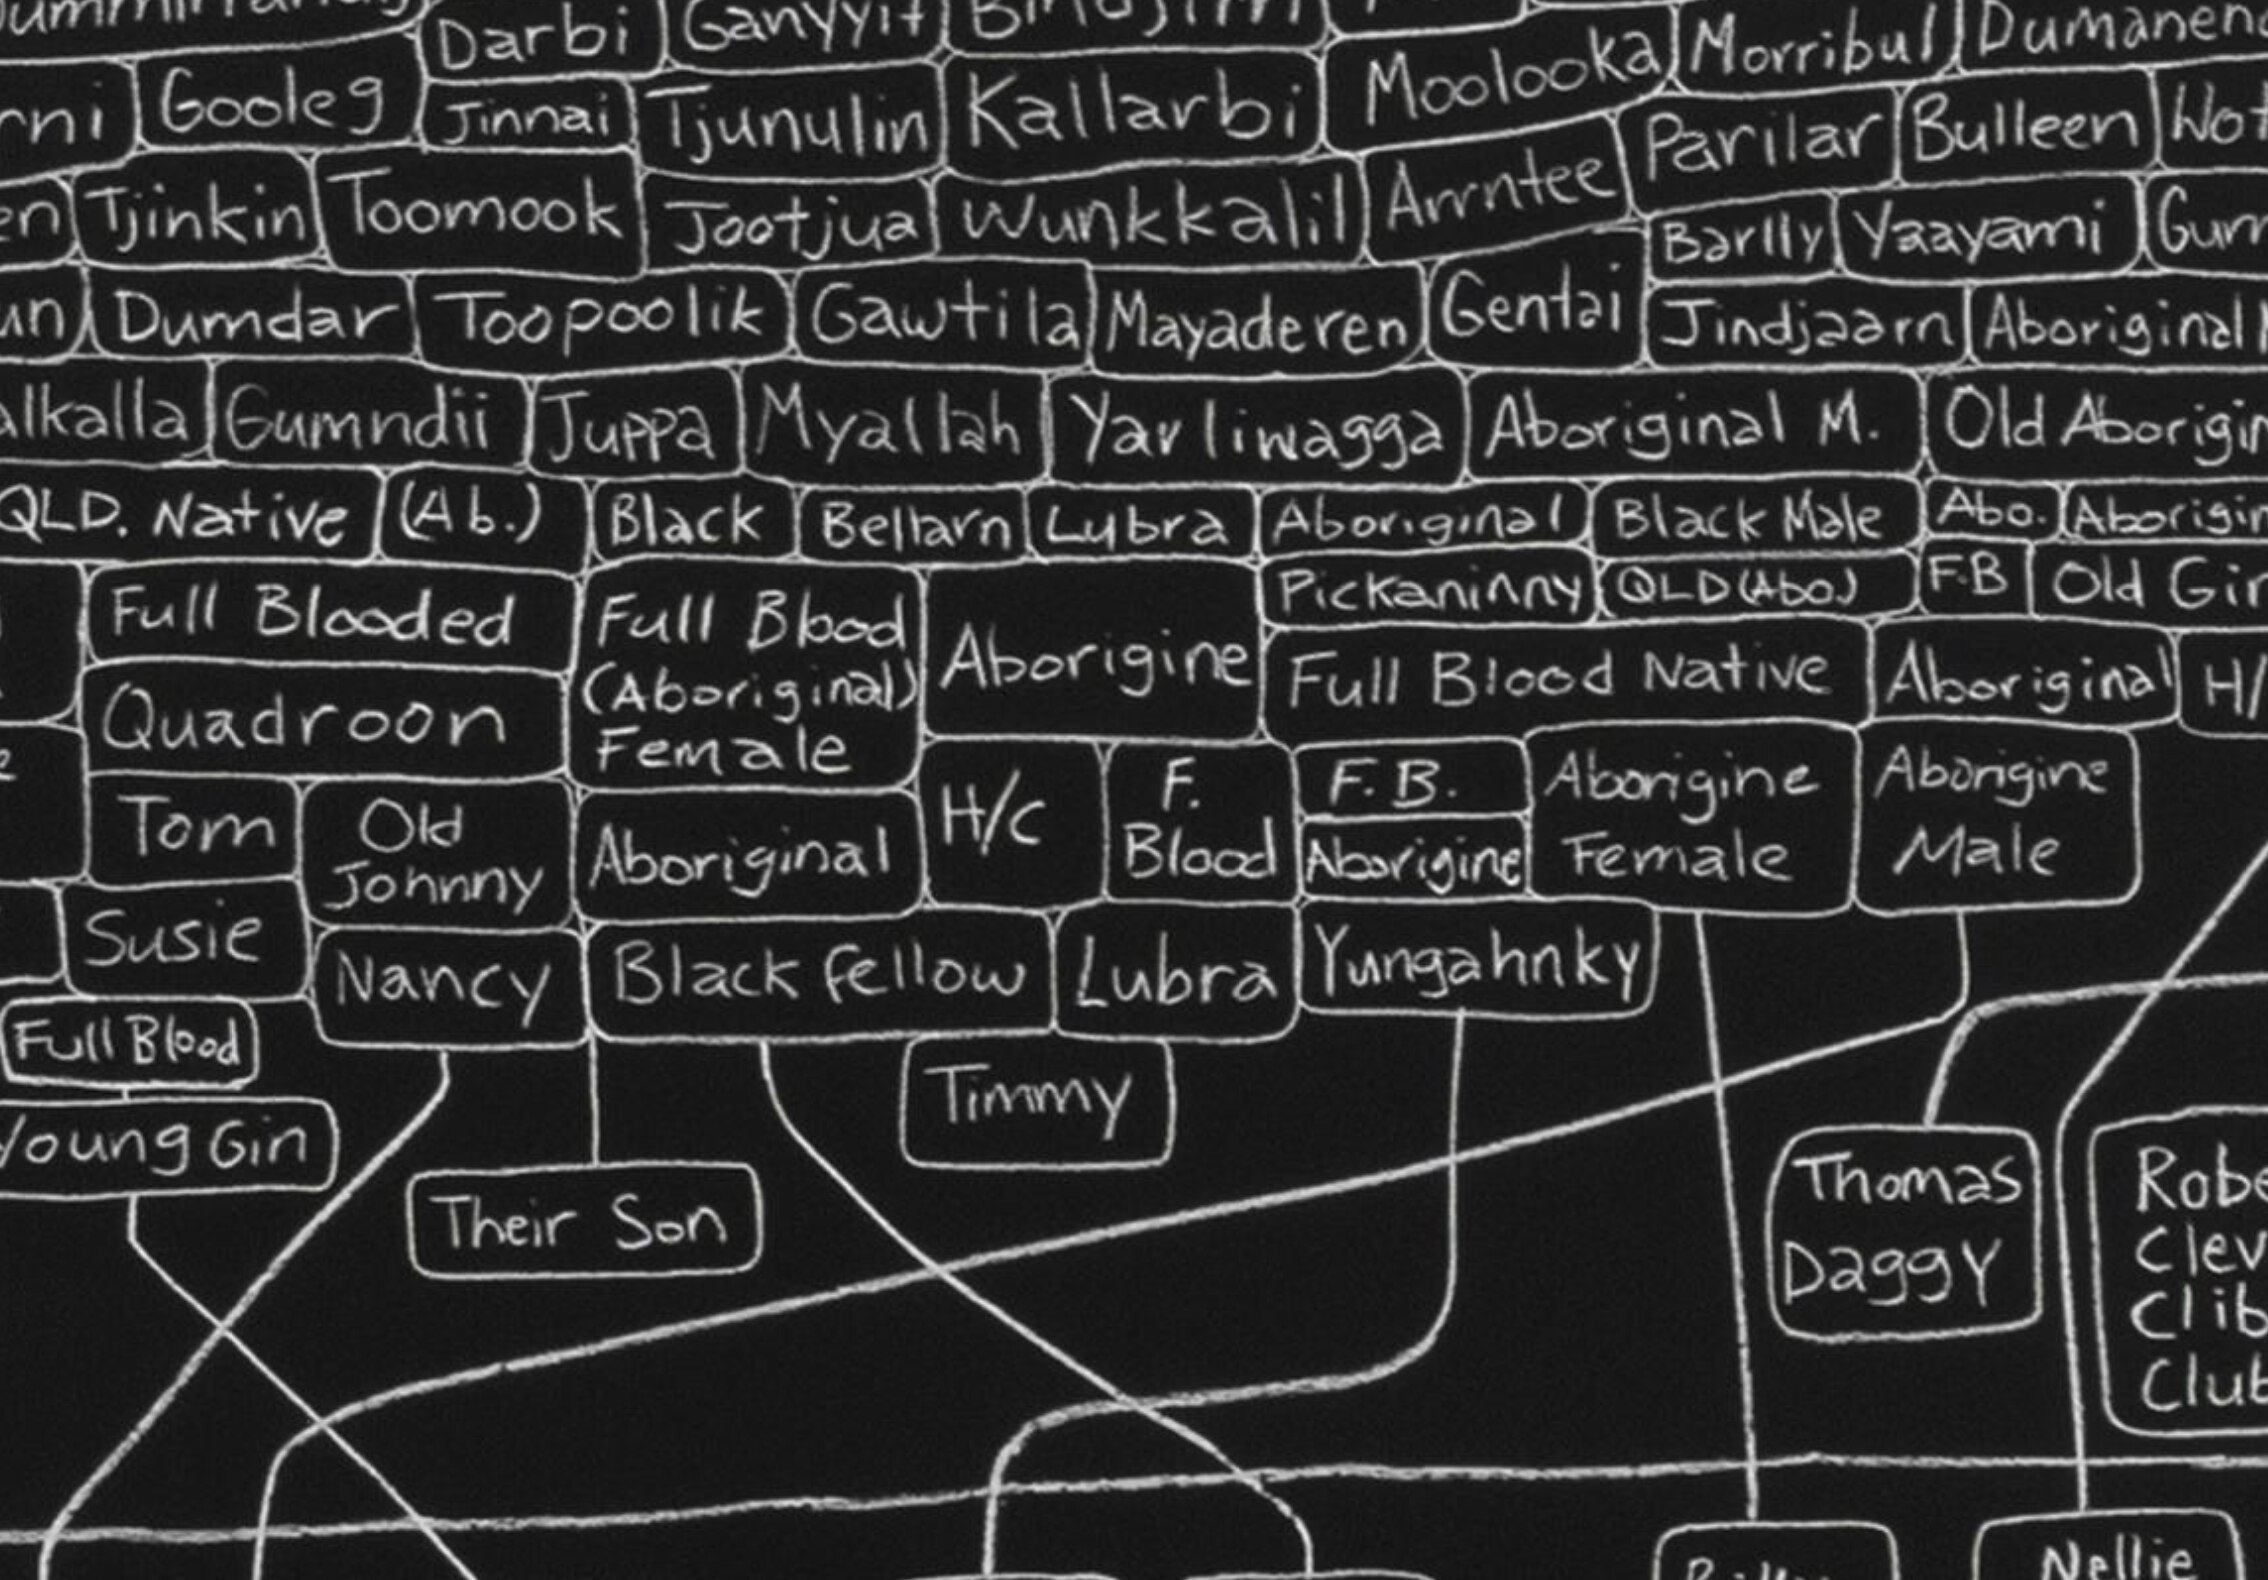 Darbi
Ganyyit
Morribul
Gooleg
Jinnai
Tjunulin
Kallarbi
Moolooka
Parilar
Bulleen
Tjinkin
Toomook
Jootjua
Wunkkalil
Arrntee
Barlly
Yaayami
Dumdar
Toopoolik
Gawtila
Mayaderen
Gentai
Jindjaarn
Aboriginal
Gumndii
Juppa
Myallah
Yarliwagga
Aboriginal M.
Old
QLD. Native
(Ab.)
Black
Bellarn
Lubra
Aboriginal
Black Male
Abo.
Pickaninny
QLD (Abo.)
F.B
Old
Full Blooded
Full Blood
(Aboriginal)
Female
Aborigine
Full Blood Native
Aboriginal
H/
Quadroon
Tom
Old
Johnny
Aboriginal
H/c
F.
Blood
F.B.
Aborigine
Aborigine
Female
Aborigine
Male
Susie
Nancy
Black fellow
Lubra
Yungahnky
Full Blood
Timmy
Young Gin
Their Son
Thomas
Daggy
Nellie